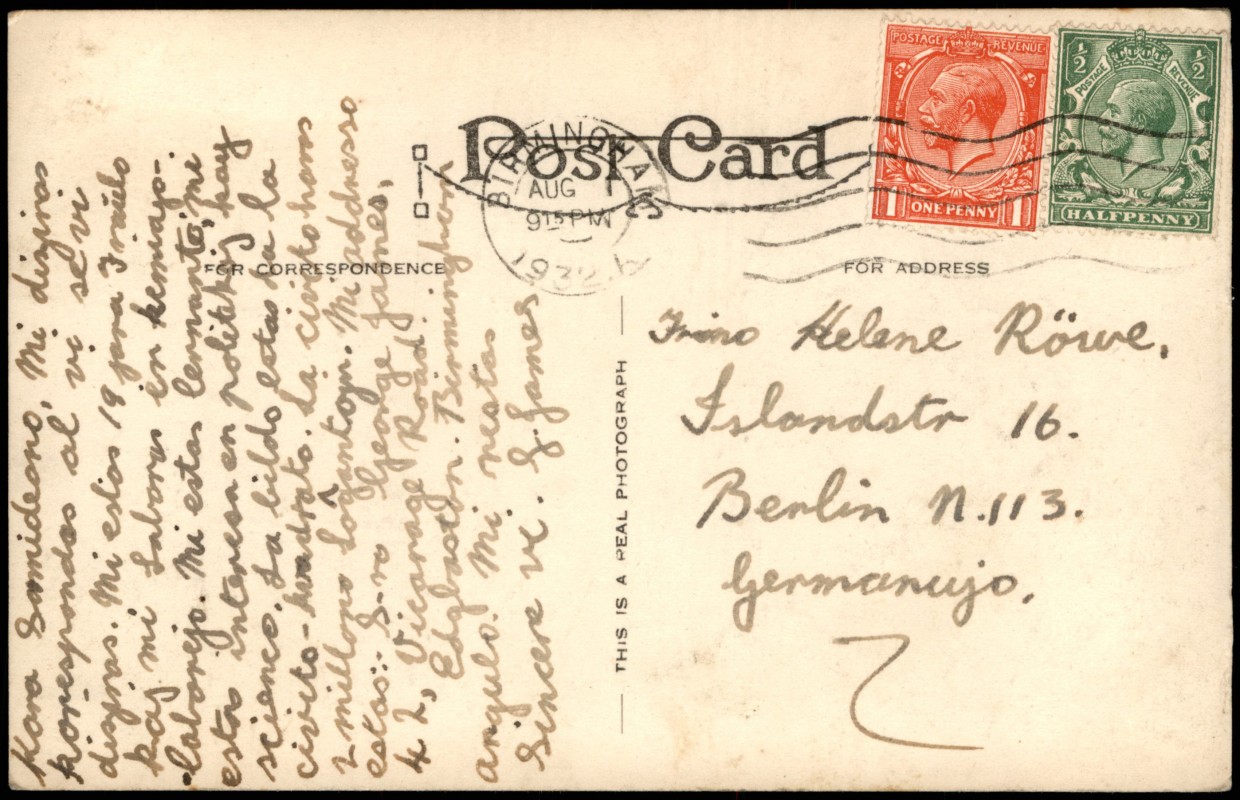 POSTAGE REVENUE
1 ONE PENNY 1
½ ½
POSTAGE REVENUE
HALFPENNY
Post Card
BIRMINGHAM
AUG
915 PM
1932
FOR CORRESPONDENCE
FOR ADDRESS
THIS IS A REAL PHOTOGRAPH
Kara Samideano, Mi deziras
korespondas al vi se vi
deziras. Mi estas 19 jara Fraŭlo
kaj mi laboras en kemiap-
laborejo. Mi estas lernanto, mi
estas interesa en politikoj kaj
scienco. La bildo estas de la
civito-kvadrato. La civito havas
2 miliono loĝantojn. Mi addresso
estas:- S-ro George James,
42, Vicarage Road
Edgbaston. Birmingham
angulo. Mi restas
Sincere ve. G. James
Frino Helene Röwe,
Islandstr 16.
Berlin N.113.
Germanujo,